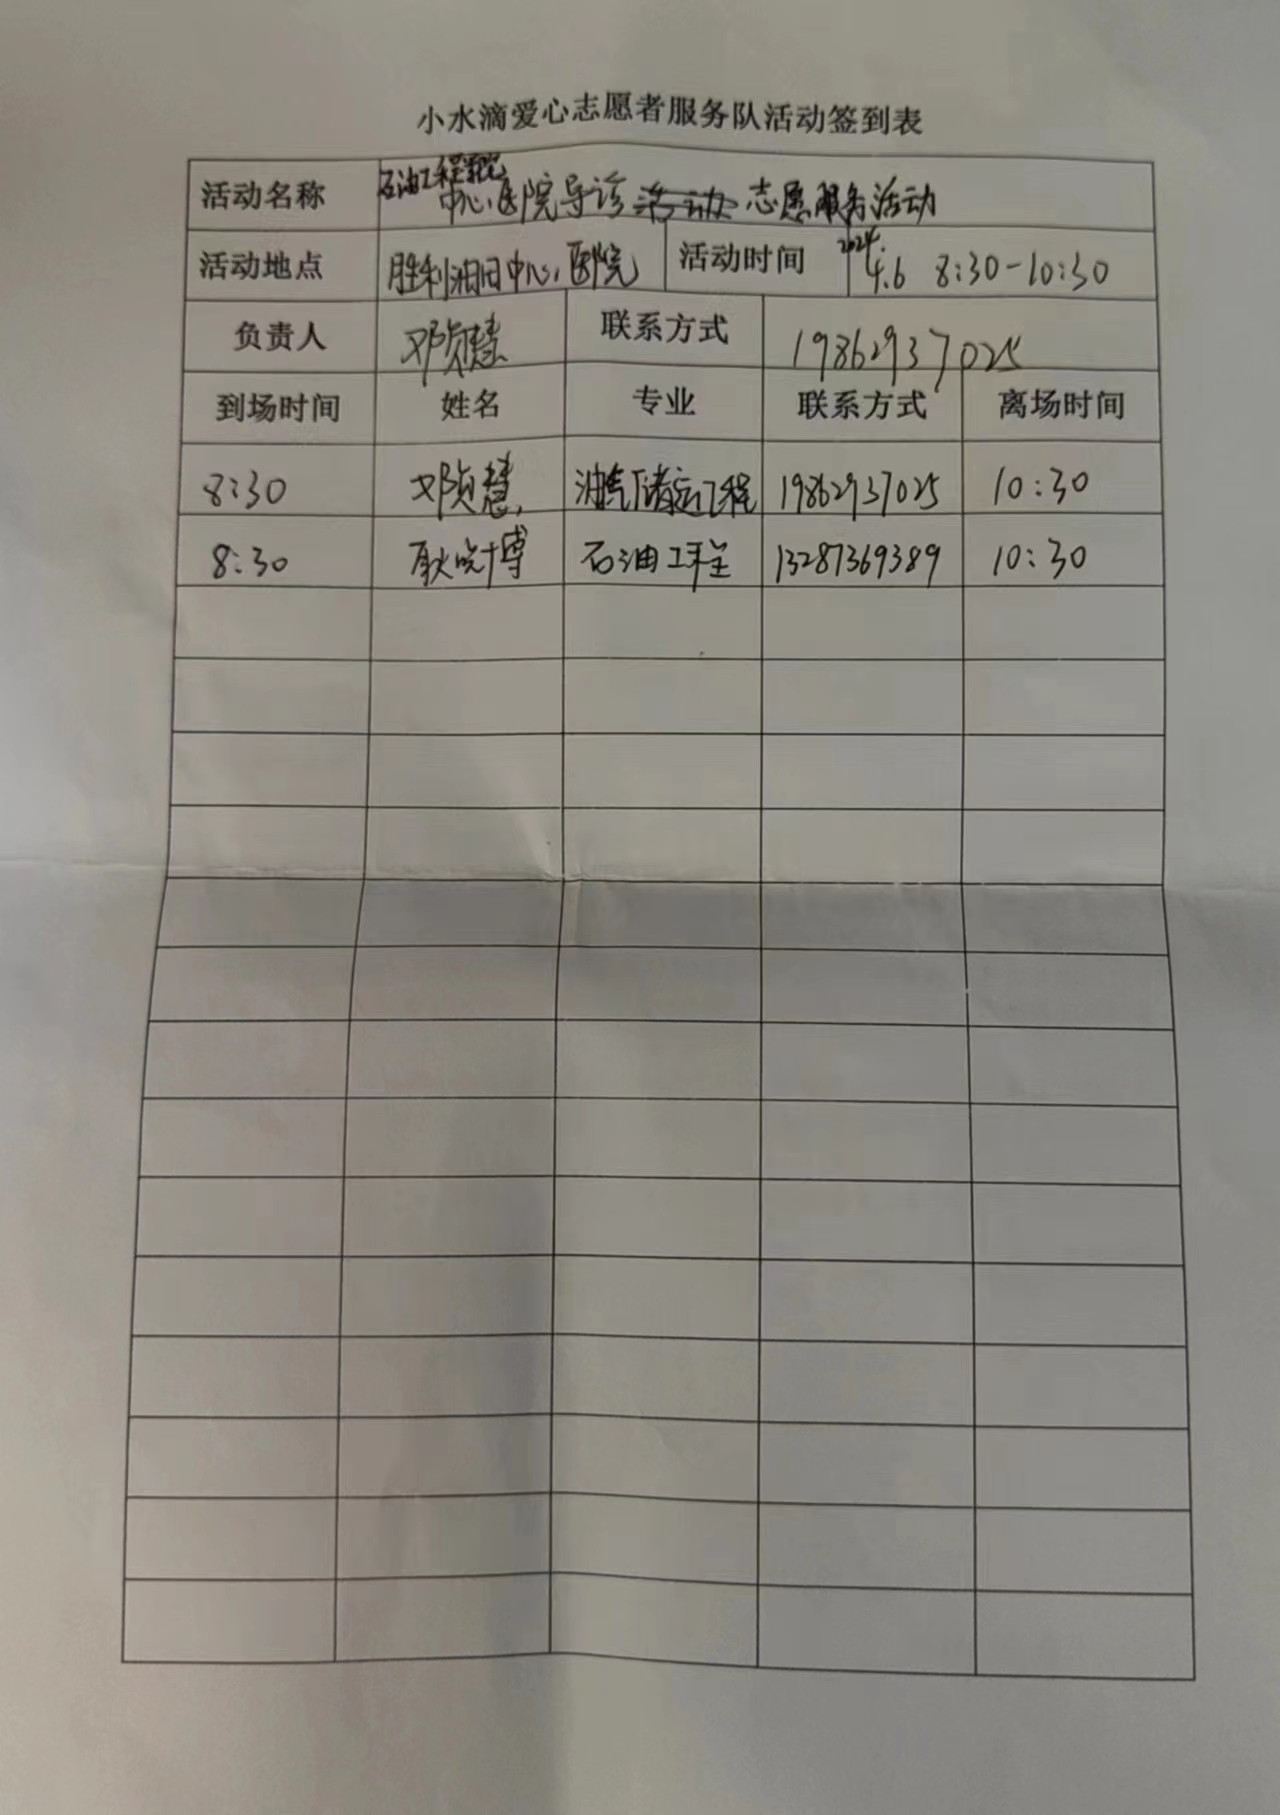 小水滴爱心志愿者服务队活动签到表
活动名称 石油工程学院
中心医院导诊 活动 志愿服务活动
活动地点 胜利油田中心医院 活动时间 2024.
4.6 8:30-10:30
负责人 邓贞慧 联系方式 19862937025
到场时间 姓名 专业 联系方式 离场时间
8:30 邓贞慧 油气储运工程 19862937025 10:30
8:30 耿晓博 石油工程 13287369389 10:30